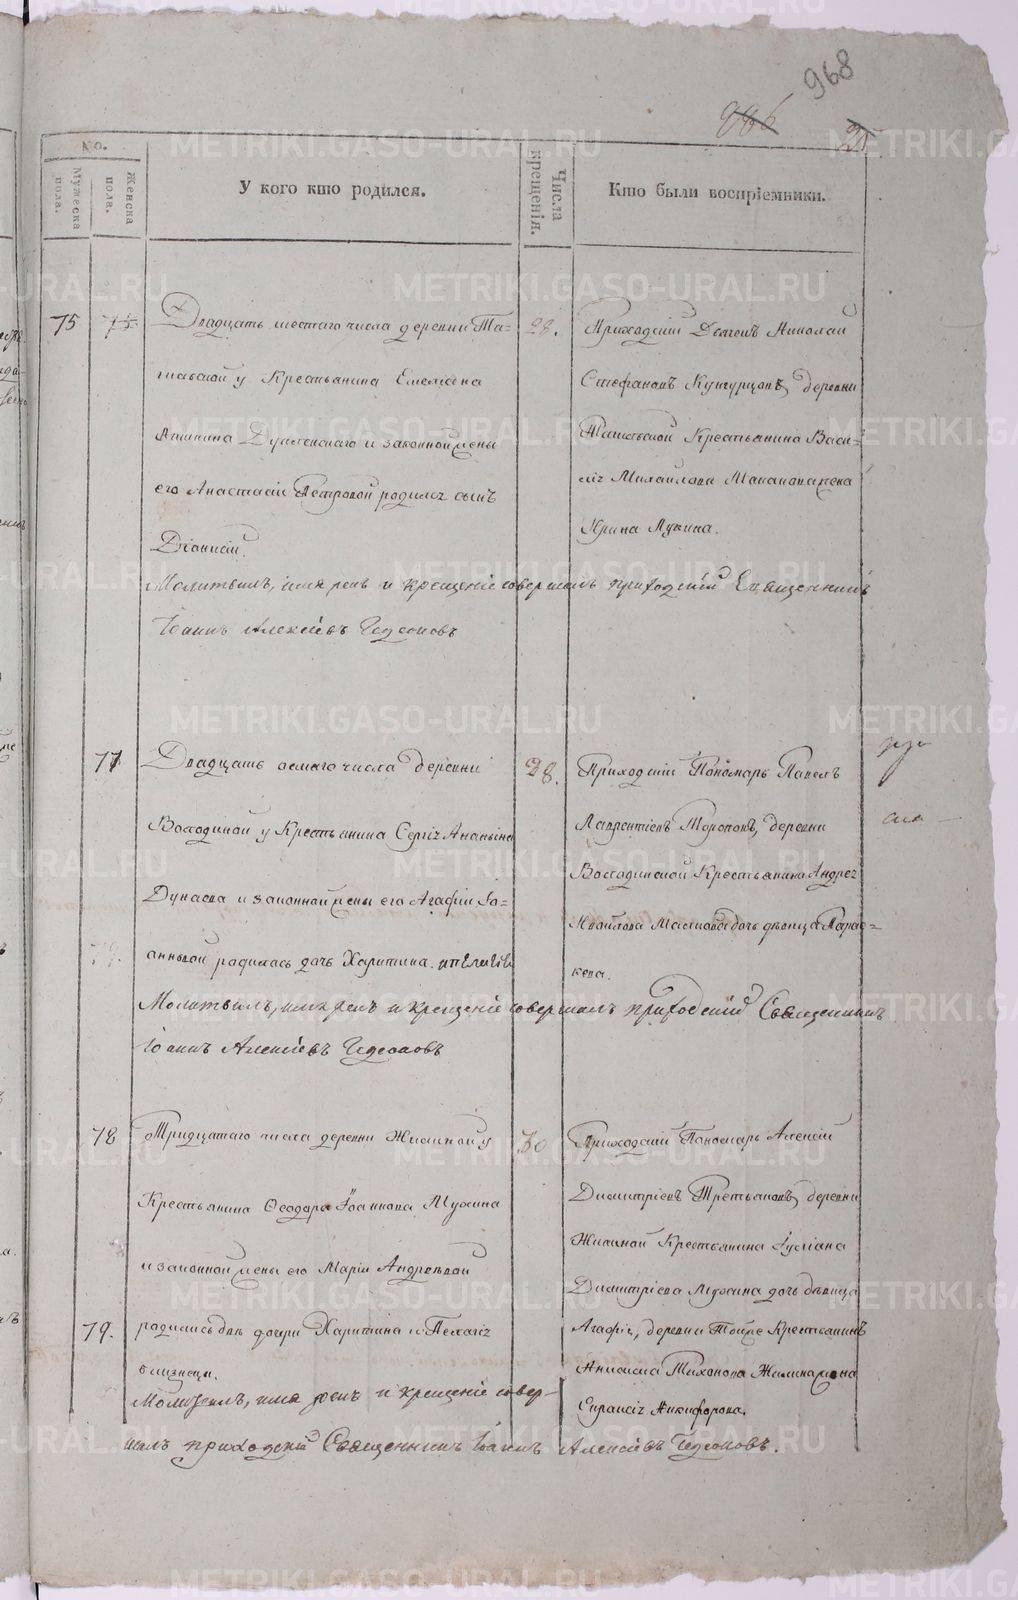 968
966
No.
Мужеска пола.
Женска пола.
У кого кто родился.
Числа крещенія.
Кто были воспріемники.
75
75
Двадцать шестаго числа деревни Та-
у Крестьянина Емельяна
и законной жены
его Анастасіи Петровой родился сынъ
Діонисій.
28.
Приходскій Дьячекъ Николай
Стефановъ Кунгурцовъ, деревни
Крестьянина Васи-
лія Михайлова жена
Ирина Лукина.
Молитвилъ, имя рекъ и крещеніе совершалъ приходскій Священникъ
Іоаннъ Алексіевъ Гедеоновъ
77
Двадцать осмаго числа деревни
Володиной у Крестьянина Сергія Ананьина
Дунаева и законной жены его Агафіи Іо-
анновой родилась дочь Харитина.
28.
Приходскій Пономарь Павелъ
Лаврентіевъ Топорковъ, деревни
Крестьянина Андрея
дочь дѣвица Парас-
кева.
Молитвилъ, имя рекъ и крещеніе совершалъ приходскій Священникъ
Іоаннъ Алексіевъ Гедеоновъ
78
Тридцатаго числа деревни Жилиной у
Крестьянина Ѳеодора Іоаннова Мухина
и законной жены его Маріи Андреевой
79.
родились двѣ дочери Харитина и Пелагія
близнецы.
30
Приходскій Пономарь Алексій
Димитріевъ Третьяковъ, деревни
Жилиной Крестьянина
Димитріева Мухина дочь дѣвица
Агафія, деревни Тойже Крестьянинъ
Тихонова Жилина жена
Евпраксія Никифорова.
Молитвилъ, имя рекъ и крещеніе совер-
шалъ приходскій Священникъ Іоаннъ Алексіевъ Гедеоновъ.
METRIKI.GASO-URAL.RU